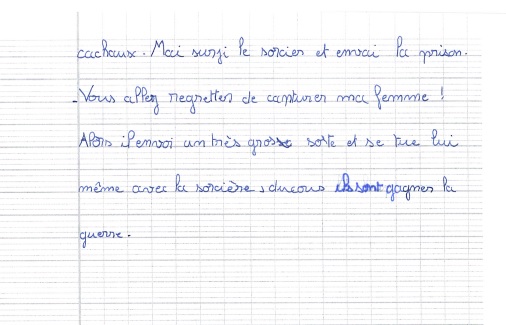 cachaux. Mai surgi le sorcier et envai la prison.
- Vous allez regretter de capturer ma femme !
Alors il envoi un très grosse sorte et se tue lui
même avec la sorcière, ducous ils sont gagner la
guerre.